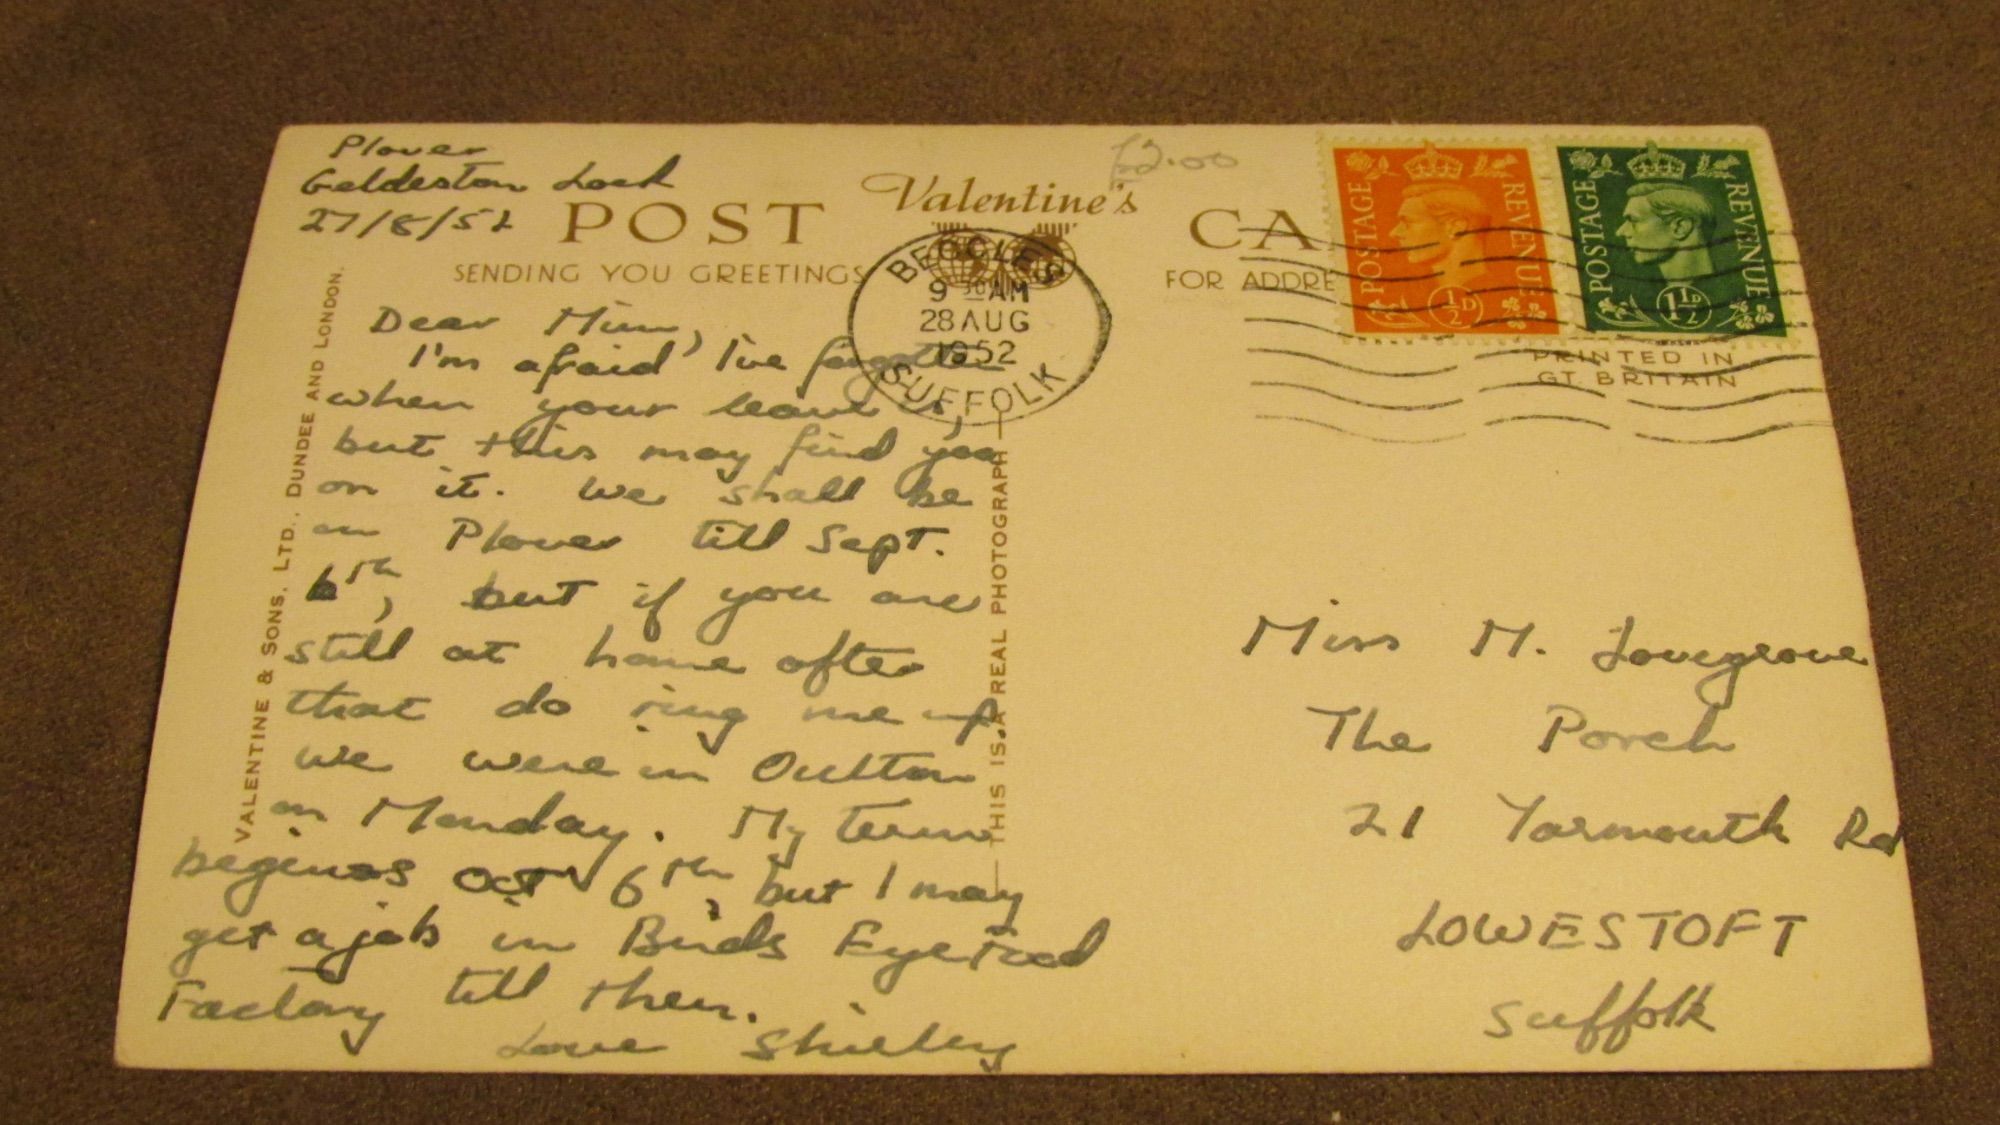 Plover
Geldeston Lock
27/8/52
£2.00
Valentine's
POST CA
SENDING YOU GREETINGS
FOR ADDRE
BECCLES
9 30 AM
28 AUG
1952
SUFFOLK
POSTAGE REVENUE
½D
POSTAGE REVENUE
1½D
PRINTED IN
GT. BRITAIN
VALENTINE & SONS, LTD., DUNDEE AND LONDON.
THIS IS A REAL PHOTOGRAPH
Dear Mim,
I'm afraid I've forgotten
when your leave is,
but this may find you
on it. We shall be
on Plover till Sept.
6th, but if you are
still at home after
that do ring me up
we were in Oulton
on Monday. My term
begins Oct 6th, but I may
get a job in Birds Eye Food
Factory till then.
Love Shirley
Miss M. Lovegrove
The Porch
21 Yarmouth Rd
LOWESTOFT
Suffolk